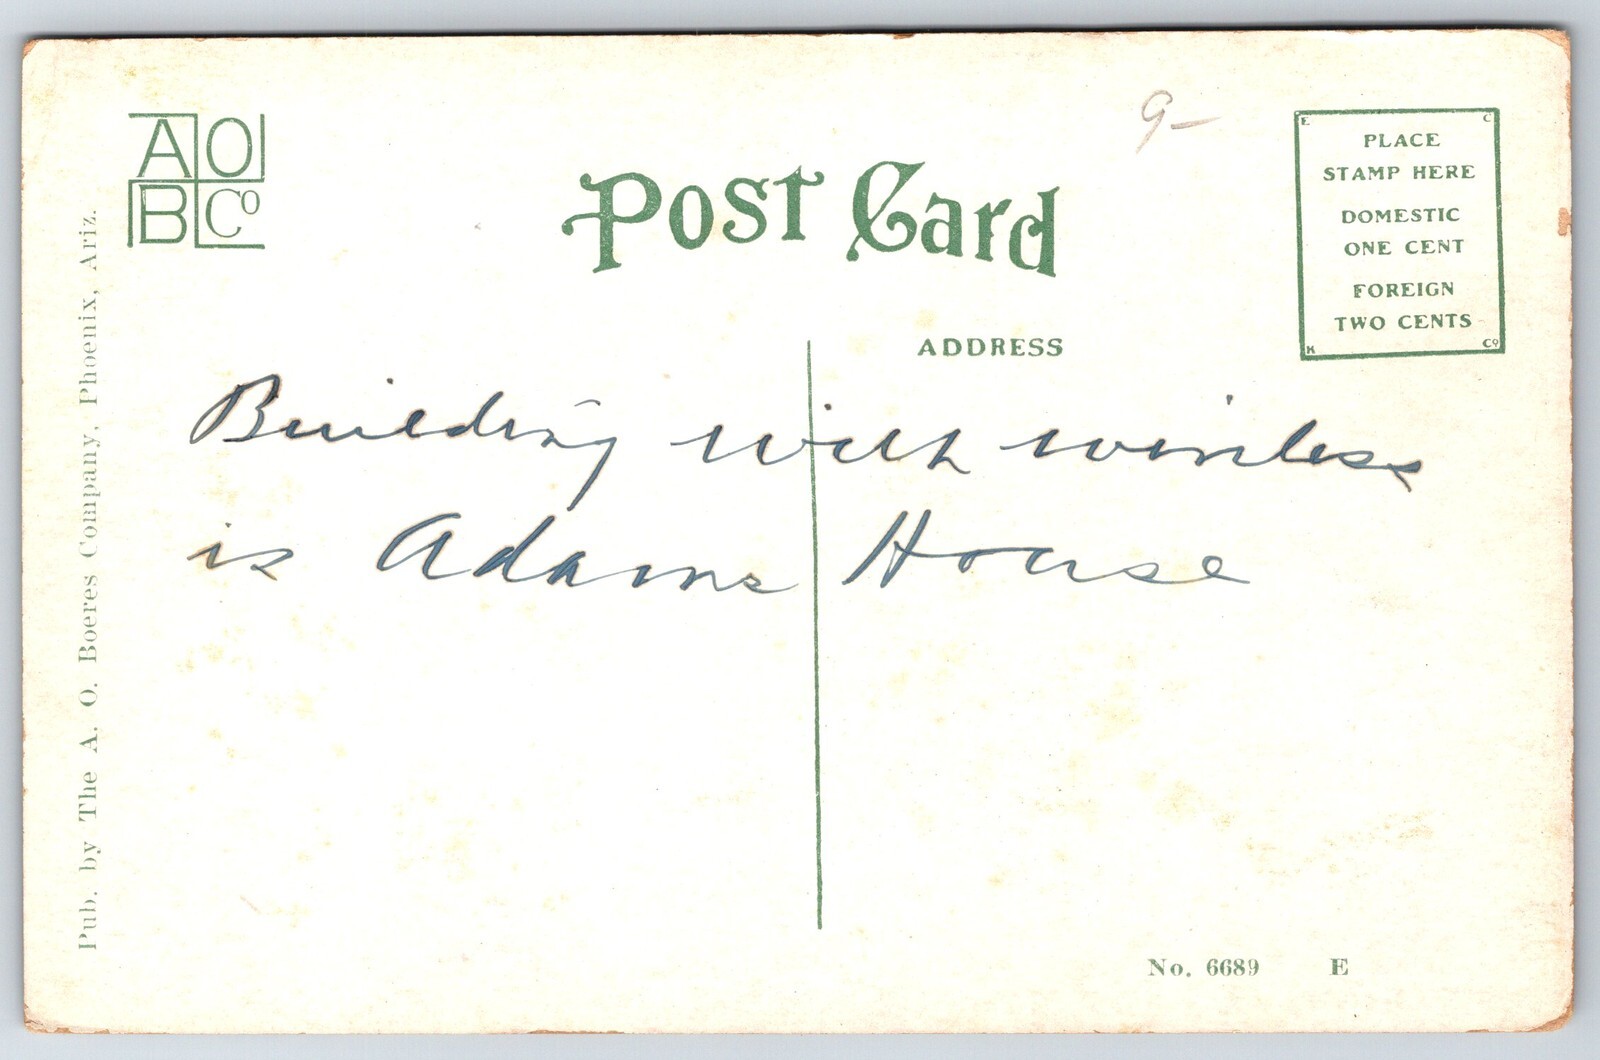 AO
BCo
Post Card
9-
E C
PLACE
STAMP HERE
DOMESTIC
ONE CENT
FOREIGN
TWO CENTS
K Co
ADDRESS
Building with wireless
is Adams House
Pub. by The A. O. Boeres Company, Phoenix, Ariz.
No. 6689 E